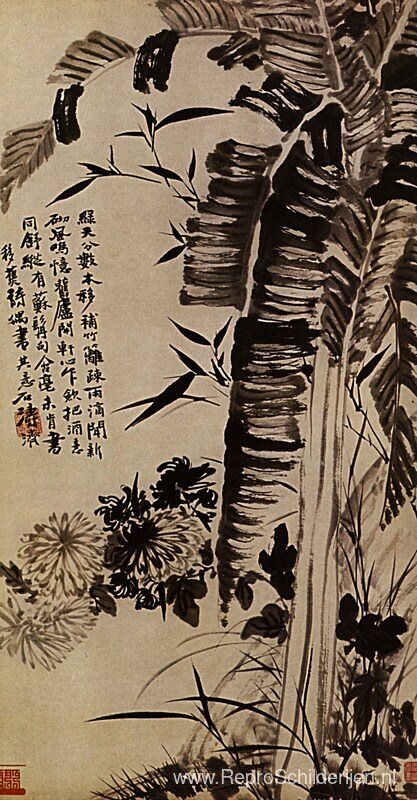 綠天分數本移補竹籬疎雨滴聞新
砌風鳴憶舊廬開軒心乍把酒意
同舒縱有蘇髯句含毫未肯書
移蕉詩偶書其意石濤濟
www.ReproSchilderijen.nl